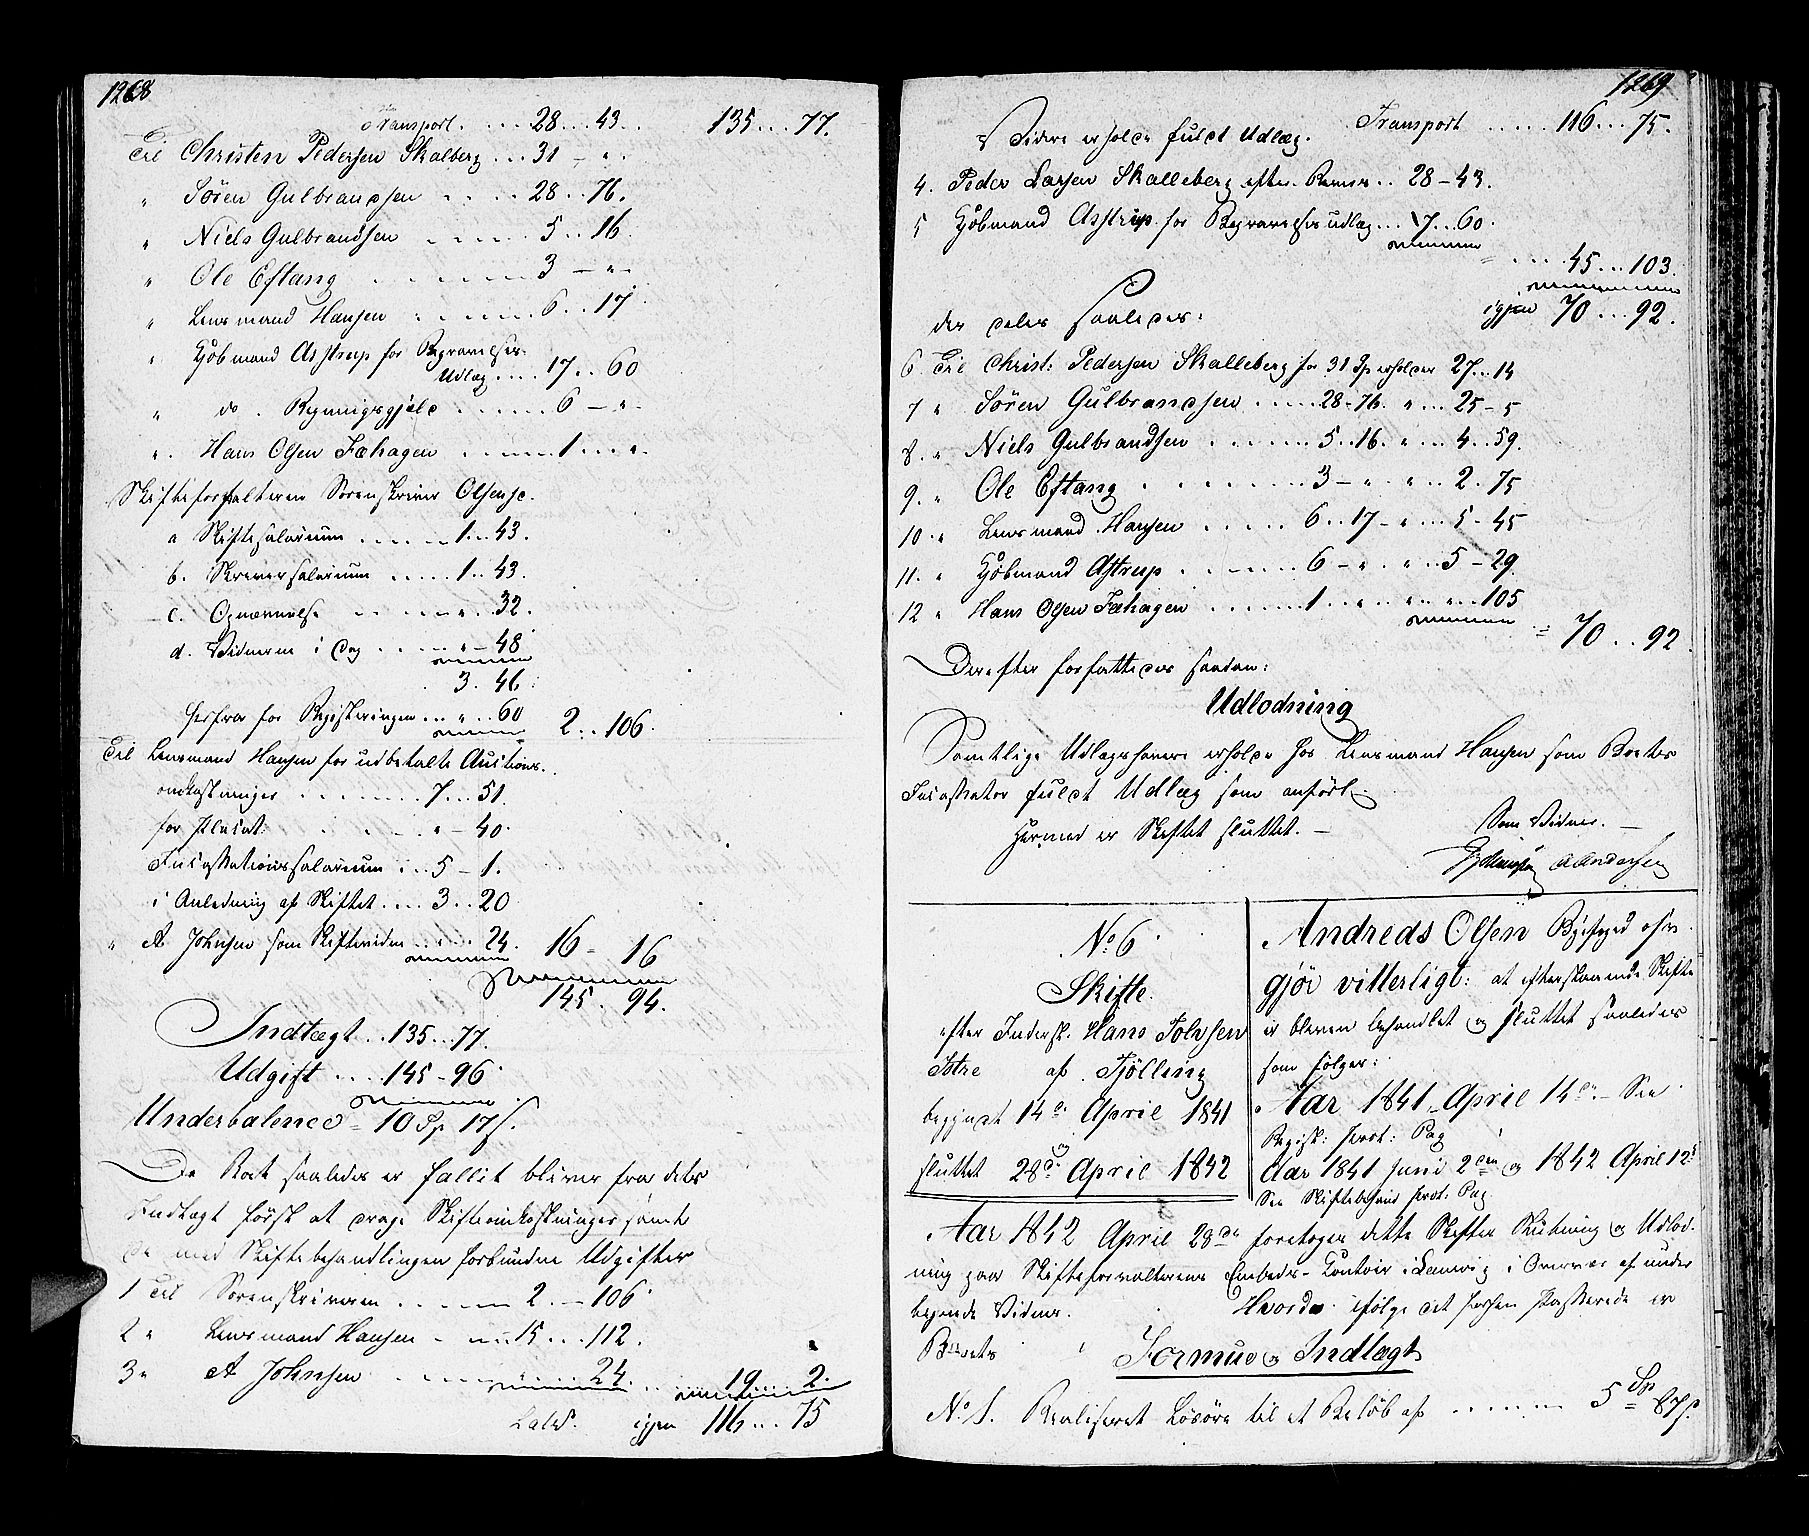 1268
Transport. . . . 28 . . 43 . . 135 . . . 77.
Til Christen Pedersen Skalberg . . . 31 — " .
" Sören Gulbrandsen . . . . 28 . . 76.
" Niels Gulbrandsen . . . . . 5 . . 16
" Ole Eftang . . . . . . . 3 — " -
" Lensmand Hansen . . . . . 6 . . 17
" Kjöbmand Astrup for Begravelses-
Udlæg . . . . 17 . . 60
" do . Regningsgjeld . . . . . 6 — " .
" . Hans Olsen Fæhagen . . . . . 1 . . . " .
Skifteforvalteren Sorenskriver Olsen sc.
a Skiftesalarium . . . . . 1 . . 43.
b. Skriversalarium . . . . . 1 . . 43.
c. Opnævnelse . . . . . " . . 32.
d. Vidnerne i dag . . . . . " — 48
3 . 46 :
herfra for Registeringen . . . " . . 60 2 . . 106.
Til Lensmand Hansen for udbetalte Auctions-
omkostninger . . . . . . . 7 . . . 51.
for Placat . . . . . " — 40.
Incassationssalarium . . . 5 — 1.
i Anledning af Skiftet . . . . 3 . . 20
" A. Johnsen som Skiftevidne . . . . . 24. 16 - 16
145 . 94.
Indtægt . . 135 . . . 77.
Udgift . . . . 145 - 96.
Underbalence = 10 Sp 17 s.
Da Boet saaledes er fallit bliver fra dets
Indtægt først at drage Skifteomkostninger samt
de med Skiftebehandlingen forbundne Udgifter
1 Til Sorenskriveren . . . . . . 2. — 106.
2 " Lensmand Hansen . . . . 15 . . . 112.
3 " A Johnsen . . . . . . . 24 . . . . . 19 . . . 2.
Lateris igjen 116 . . . 75
1269
Transport . . . . . 116 . . . 75.
Videre erholde fuldt Udlæg.
4. Peder Larsen Skalleberg efter Beviis . . 28 — 43.
5 Kjöbmand Astrup for Begravelsesudlæg . . . 17 . . . 60.
= . . . . . 45 . . . 103.
igjen 70 . . . 92.
der deles saaledes:
6 Til Christ: Pedersen Skalleberg for 31 Sp erholder 27 . . 14
7 " Sören Gulbrandsen . . . . . 28 - 76. " . . . 25 — 5
8. " Niels Gulbrandsen . . . . . . 5 . . 16. " . . . 4 . . 59.
9. " Ole Eftang . . . . . . . . . 3 — " . " . . 2 . 75
10. " Lensmand Hansen . . . . . 6 . . 17 - " . . . 5 - 45
11. " Kjöbmand Astrup . . . . . . 6 — " . " . . 5 — 29
12 " Hans Olsen Fæhagen . . . . . . 1 . . " . . " . . " . . . 105
= 70 . . 92.
Derefter forfattedes saadan:
Udlodning
Samtlige Udlægshavere erholde hos Lensmand Hansen som Boets
Incassator fuldt Udlæg som anført.
Hermed er Skiftet sluttet. —
Som Vidner. —
AAndersen
No 6
Skifte.
efter Inderst. Hans Johnsen
Istre af Tjölling
begyndt 14de April 1841
og
sluttet 28de April 1842
Andreas Olsen Byefoged osv.
gjör vitterligt: at efterstaaende Skifte
er bleven behandlet og sluttet saaledes
som følger:
Aar 1841 April 14de - See
Regist: Prot: Pag
Aar 1841 Juni 2den og 1842 April 12te
See Skiftebehand Prot. Pag
Aar 1842 April 28de foretoges dette Skiftes Slutning og Udlod-
ning paa Skifteforvalterens Embeds-Contoir i Laurvig i Overvær af under-
tegnede Vidner. Hvorda ifölge det forhen passerede er
Boets
Formue og Indtægt
No 1. Realiseret Løsöre til et Beløb af . . . . . . . 5 Sp = 87 s.